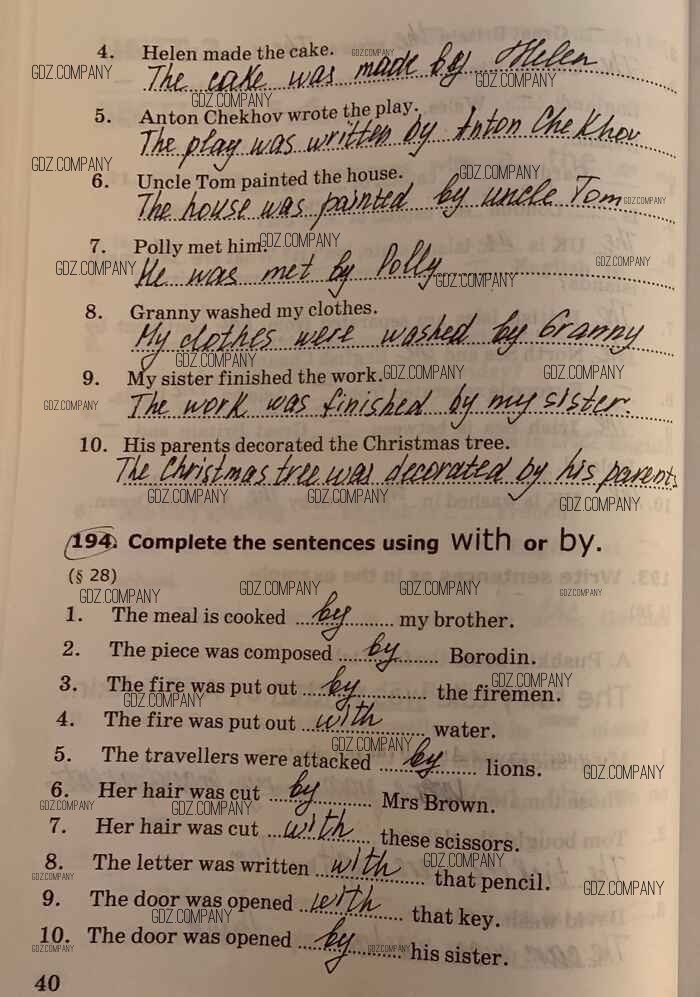 4. Helen made the cake.
The cake was made by Helen
5. Anton Chekhov wrote the play.
The play was written by Anton Chekhov
6. Uncle Tom painted the house.
The house was painted by uncle Tom
7. Polly met him.
He was met by Polly
8. Granny washed my clothes.
My clothes were washed by Granny
9. My sister finished the work.
The work was finished by my sister.
10. His parents decorated the Christmas tree.
The Christmas tree was decorated by his parents
194. Complete the sentences using with or by.
(§ 28)
1. The meal is cooked by my brother.
2. The piece was composed by Borodin.
3. The fire was put out by the firemen.
4. The fire was put out with water.
5. The travellers were attacked by lions.
6. Her hair was cut by Mrs Brown.
7. Her hair was cut with these scissors.
8. The letter was written with that pencil.
9. The door was opened with that key.
10. The door was opened by his sister.
40
GDZ.COMPANY